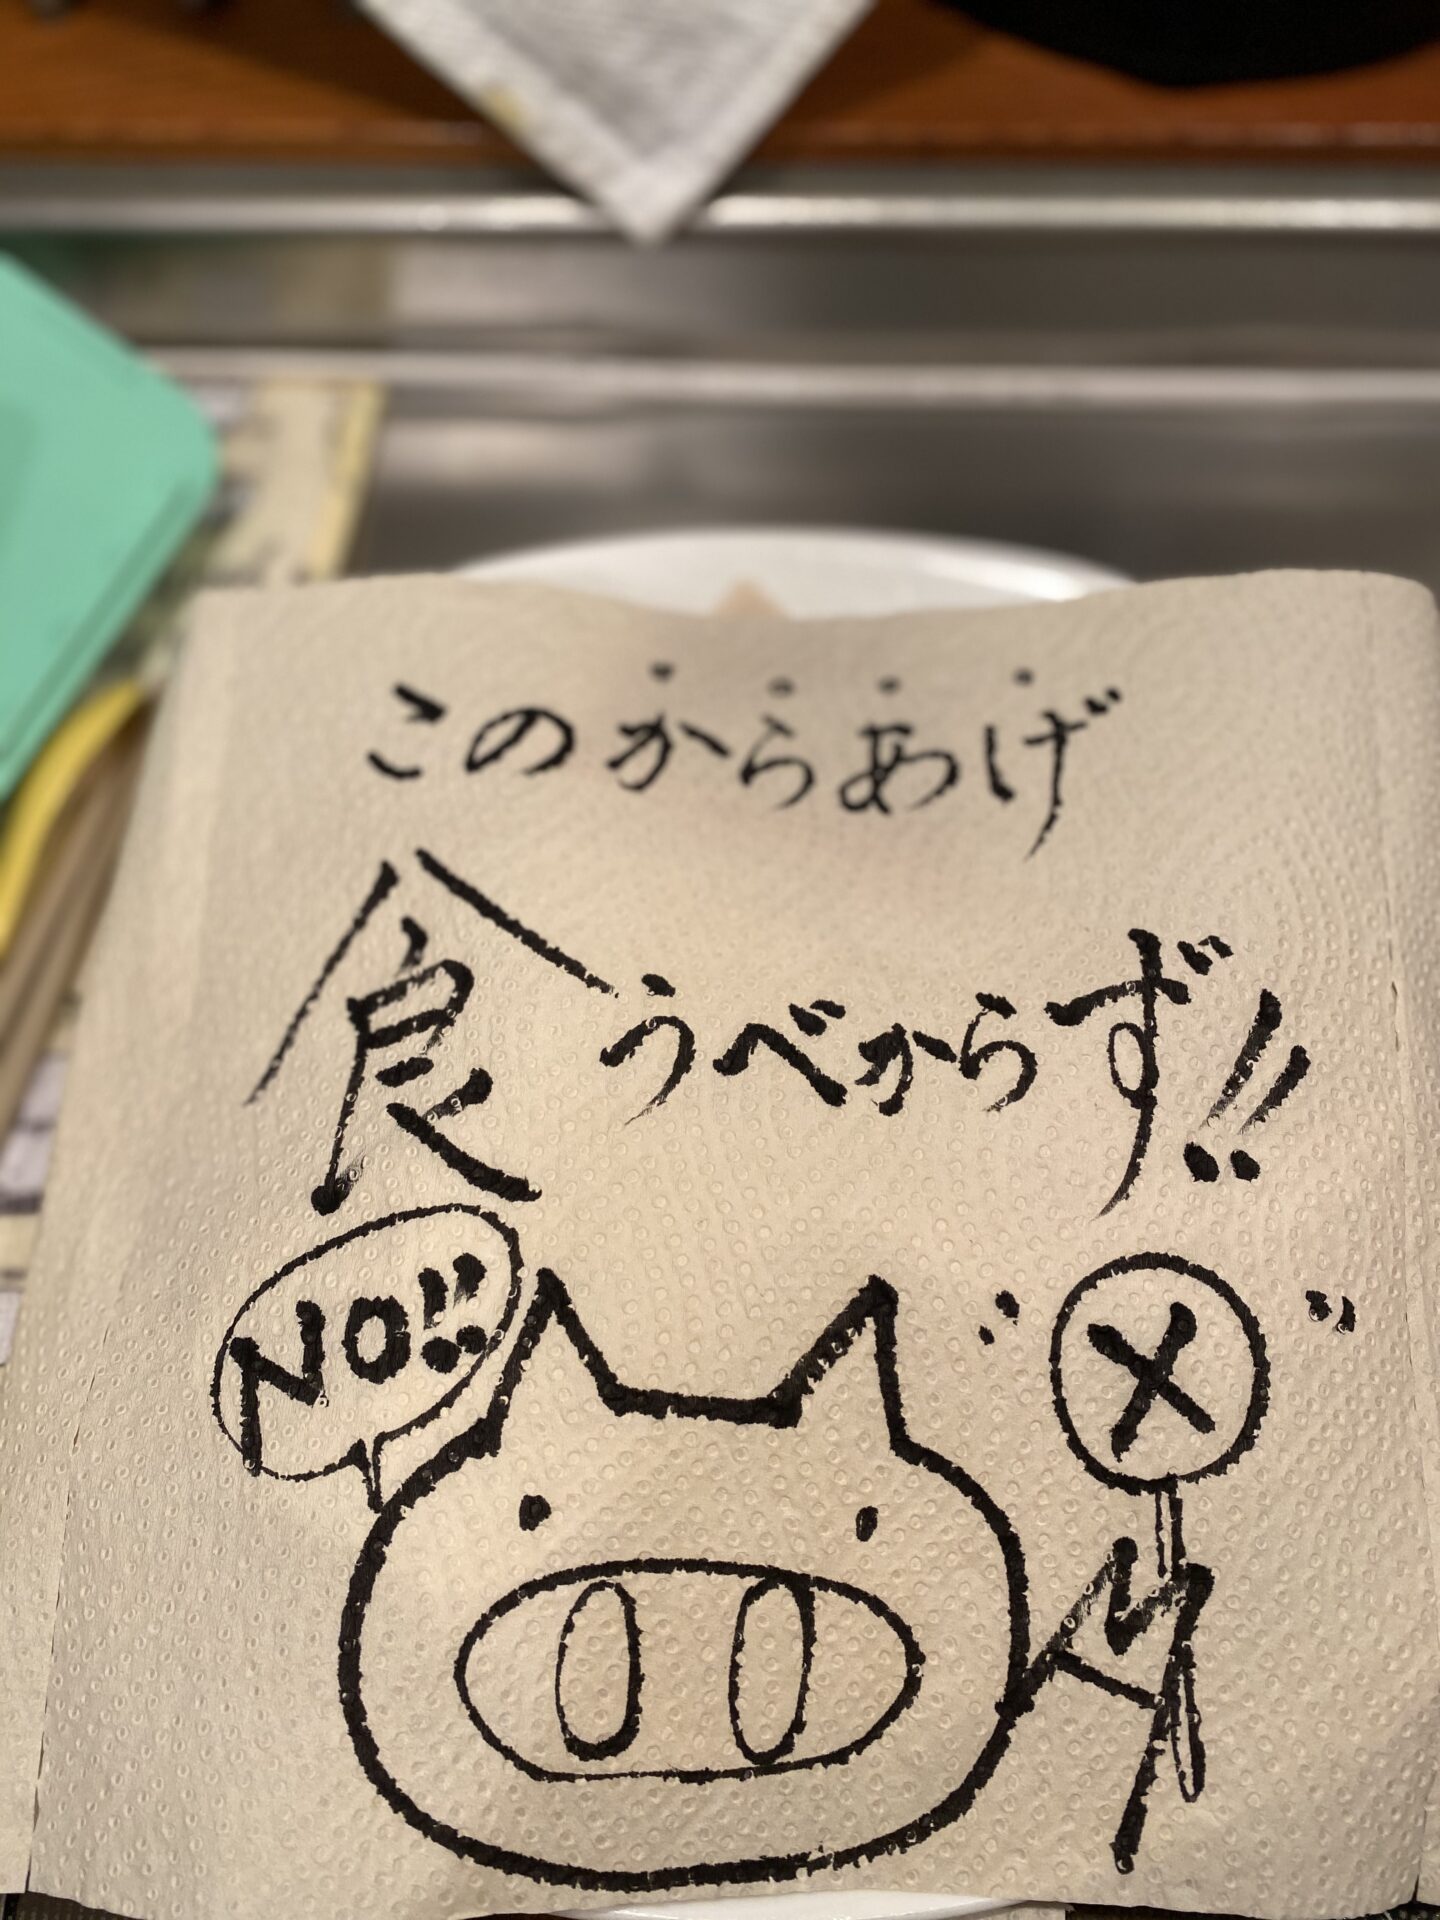 このからあげ
食うべからず!!
NO!!